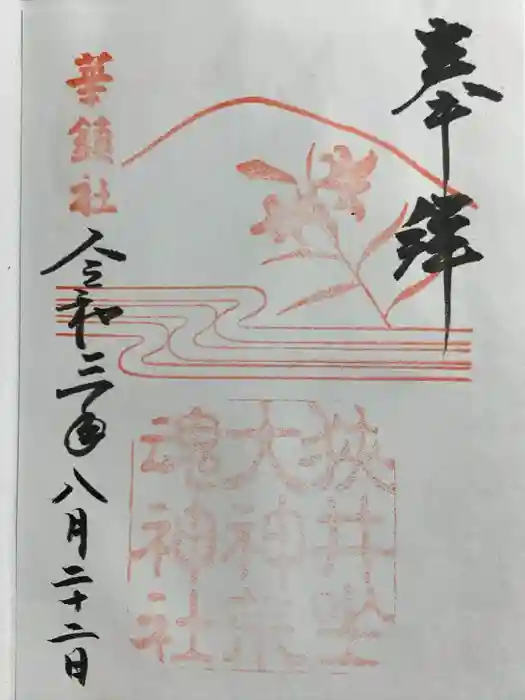 奉拝
狭井坐
大神荒
魂神社
華鎮社
令和三年八月二十二日